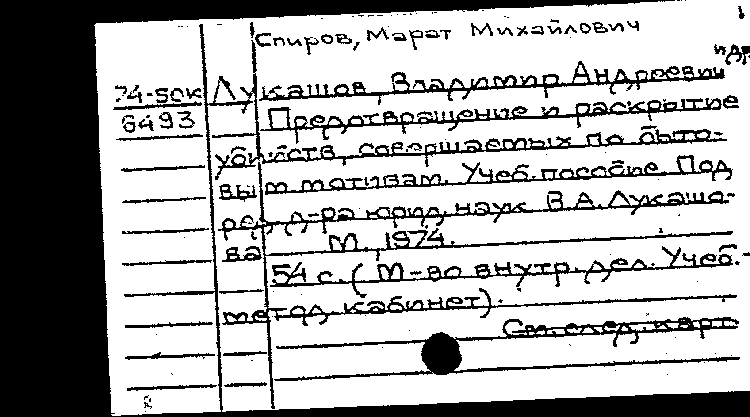 Спиров, Марат Михайлович
и др.
74-5ок Лукашов, Владимир Андреевич
6493 Предотвращение и раскрытие
убийств, совершаемых по быто-
вым мотивам. Учеб. пособие. Под
ред. д-ра юрид. наук В.А. Лукашо-
ва М., 1974.
54 с. (М-во внутр. дел. Учеб.-
метод. кабинет).
См. след. карт